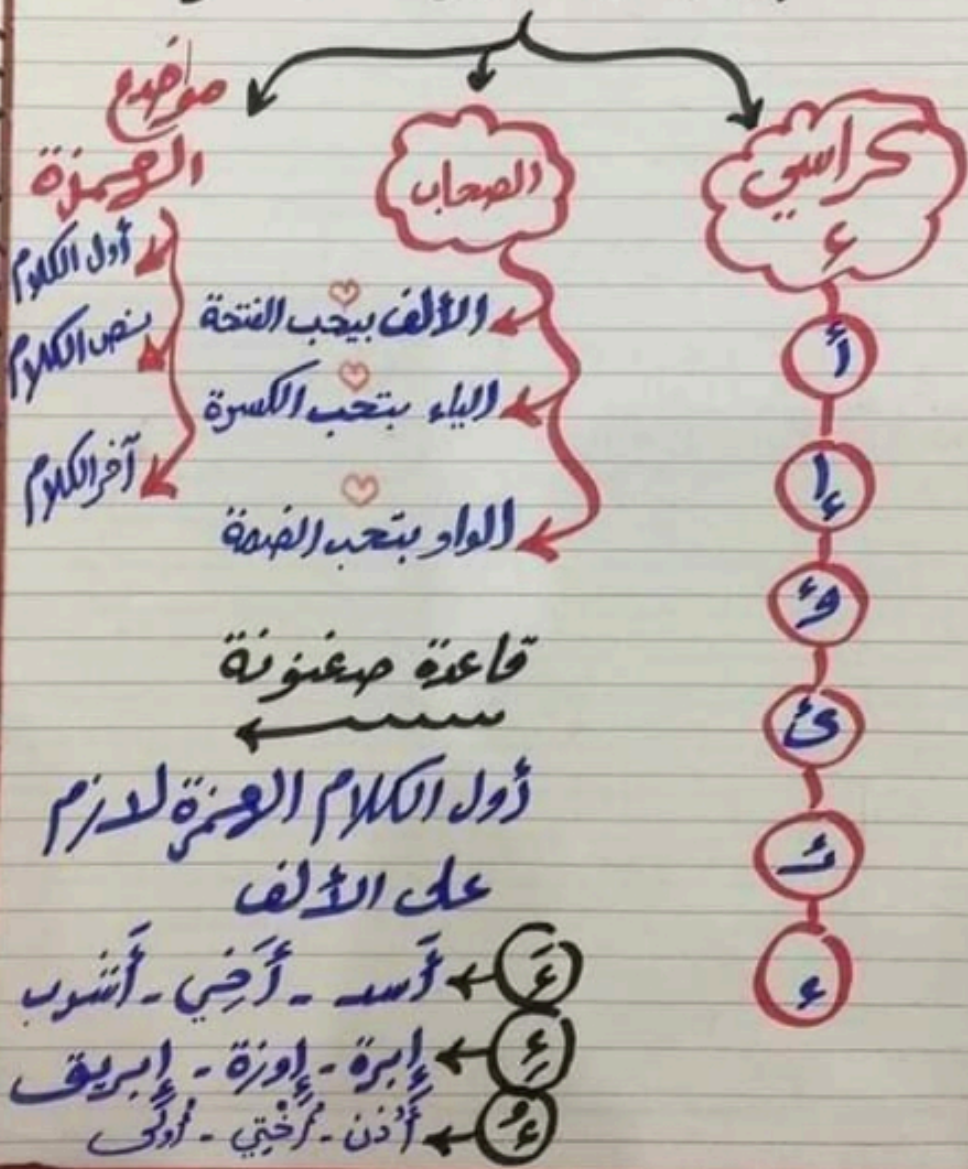 كراسي
ء
أ
إ
ؤ
ئ
ئـ
ء
الصحاب
الألف بيحب الفتحة
الياء بتحب الكسرة
الواو بتحب الضمة
مواضع
الهمزة
أول الكلام
نص الكلام
آخر الكلام
قاعدة صغنونة
أول الكلام الهمزة لازم
على الألف
ءَ أَسد - أَخي - أَشوب
ءِ إِبرة - إِوزة - إِبريق
ءُ أُذن - أُختي - أُولى